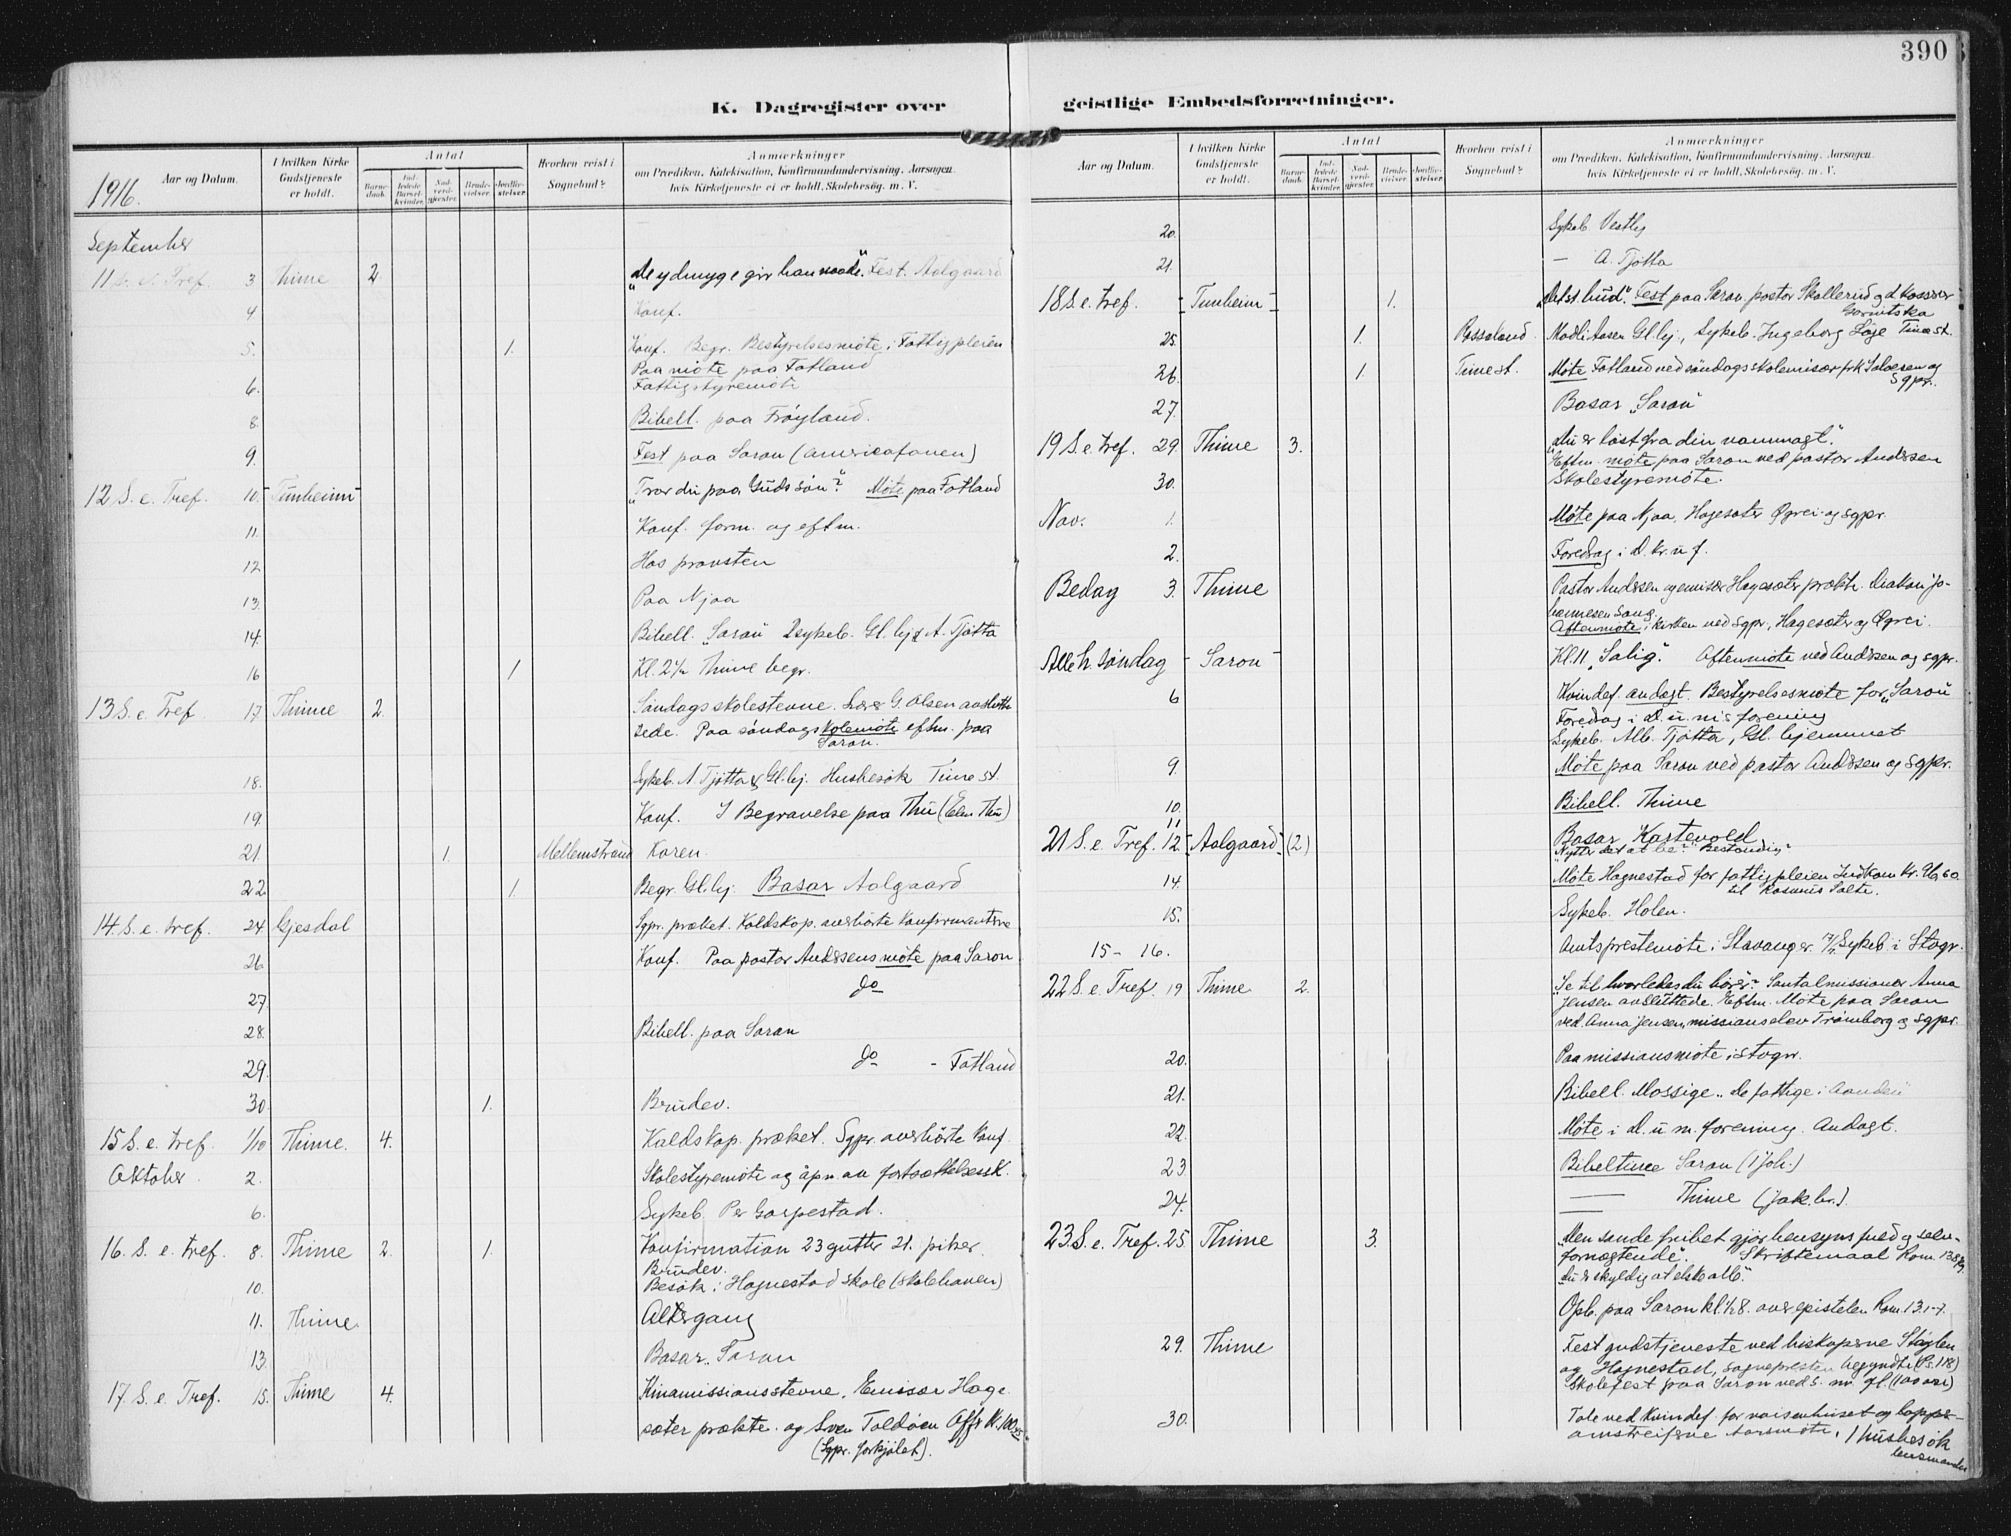 390
K. Dagregister over geistlige Embedsforretninger.
Aar og Datum.
I hvilken Kirke Gudstjeneste er holdt.
Antal
Barnedaab.
Indledede Barselkvinder.
Nadverdgjester.
Brudevielser.
Jordfæstelser.
Hvorhen reist i Sognebud?
Anmærkninger
om Prædiken, Katekisation, Konfirmandundervisning, Aarsagen, hvis Kirketjeneste ei er holdt, Skolebesøg. m. V.
1916.
September
11 S. e. Tref. 3 Thime 2. "De ydmyge gir han naade". Fest. Aalgaard
4 Konf.
5. 1. Konf. Begr. Bestyrelsesmöte i Fattigpleien
Paa möte paa Fotland
6. Fattigstyremöte
8. Bibell. paa Fröyland.
9. Fest paa Saron (Americafonen)
12 S. e. Tref. 10. -Tunheim- "Tror du paa Guds sön"? Möte paa Fotland
11. Konf. form. og eftm.
12 Hos provsten
13. Paa Njaa
14. Bibell. "Saron" 2 sykeb. Gl. hj. & A. Tjötta
16 1 Kl. 2½ Thime begr.
13 S. e. Tref. 17 Thime 2. Söndagsskolestevne. Lærer G. Olsen avslut
tede. Paa söndagsskolemöte eftm. paa
Saron.
18. Sykeb. A. Tjötta & Gl. hj. Husbesök Time st.
19. Konf. I Begravelse paa Thu (Elen Thu)
21. 1. Mellemstrand Karen.
22 1. Begr. Gl. hj. Basar Aalgaard
14. S. e. tref. 24 Gjesdal Sgpr. præket. Kaldskap. overhörte konfirmanterne
26. Konf. Paa pastor Andersens möte paa Saron
27. do
28. Bibell. paa Saron
29. do - Fotland
30. 1. Brudev.
15 S. e. tref. 1/10 Thime. 4. Kaldskap. præket. Sgpr. overhörte konf.
Oktober 2. Skolestyremöte og åpn. av fortsættelsessk.
6. Sykeb. Per Garpestad.
16. S. e. tref. 8. Thime 2. 1. Konfirmation 23 gutter 21. piker.
Brudev.
10. Besök i Hognestad skole (skolehaven)
11. Thime. Altergang
13. Basar. Saron
17. S. e. Tref. 15. Thime 4. Kinamissionsstevne. Emissær Hage
sæter prækte. og Sven Foldöen Offr Kr. 100
(Sgpr. forkjölet).
Aar og Datum.
I hvilken Kirke Gudstjeneste er holdt.
Antal
Barnedaab.
Indledede Barselkvinder.
Nadverdgjester.
Brudevielser.
Jordfæstelser.
Hvorhen reist i Sognebud?
Anmærkninger
om Prædiken, Katekisation, Konfirmandundervisning, Aarsagen, hvis Kirketjeneste ei er holdt, Skolebesøg. m. V.
20. Sykeb. Vestly
21. — A. Tjötta
18 S. e. tref. -Tunheim- 1. "Det st. bud". Fest paa Saron. pastor Skollerud og d
25. 1. Rossaland Modli Aasen Gl. hj., Sykeb. Ingeborg Löge Time st.
26. 1. Time st. Möte Fotland ved söndagsskolemisær frk. Salvesen og
Sgpr.
27. Basar "Saron"
19 S. e. tref. 29. Thime 3. "Du er löst fra din vanmagt".
Eftm. möte paa Saron ved pastor Andersen
30. Skolestyremöte.
Nov. 1. Möte paa Njaa, Hagesæter Ögrei og sgpr.
2. Foredrag i D. kr. u. f.
Bedag 3. Thime Pastor Andersen og emisær Hagesæter prækte. Diakon Jo-
hannesen sang
Aftenmöte i kirken ved sgpr., Hagesæter og Ögrei.
Alleh. söndag -Saron- Kl. 11 "Salig". Aftenmöte ved Andersen og sgpr.
6 Kvindef. andagt. Bestyrelsesmöte for "Saron"
Foredrag i D. u. m's forening
Sykeb. Alb. Tjötta, Gl. hjemmet
9. Möte paa Saron ved pastor Andersen og sgpr.
10. Bibell. Thime
11.
21 S. e. Tref. 12. -Aalgaard- (2) Basar Kartevold
"Nytter det at be?" "Bestandig"
14. Möte Hognestad for fattigpleien Indkom Kr.
til Rasmus Salte.
15. Sykeb. Holen.
15 - 16. Amtsprestemöte i Stavanger. 17/11 Sykeb. i Stvgr.
22 S. e. Tref. 19 Thime 2. "Se til hvorledes du hörer". Santalmissionær Anna
Jensen avsluttede. Eftm. Möte paa Saron
ved Anna Jensen, missionselev Tromborg og sgpr.
20. Paa missionsmöte i Stvgr.
21. Bibell. Mossige "De fattige i aanden"
22. Möte i D. u. m. forening. Andagt.
23 Bibeltime Saron (1 Joh.)
24. — Thime (Jak. br.)
23. S. e. Tref. 25. Thime 3. "Den sande frihet gjör hensynsfuld og selv-
fornægtende". Skriftemaal Rom. 13.8 fg.
"Du er skyldig at elske alle."
Opb. paa Saron kl. ½8. over epistelen Rom. 13.1-7.
29. Thime Festgudstjeneste ved biskoperne Stöylen
og Hognestad, sognepresten begyndte (Ps. 118)
Skolefest paa Saron ved S.
30. Tale ved Kvindef. for vaisenhuset og lappe-
omstreiferne Aarsmöte, 1 husbesök
lensmanden